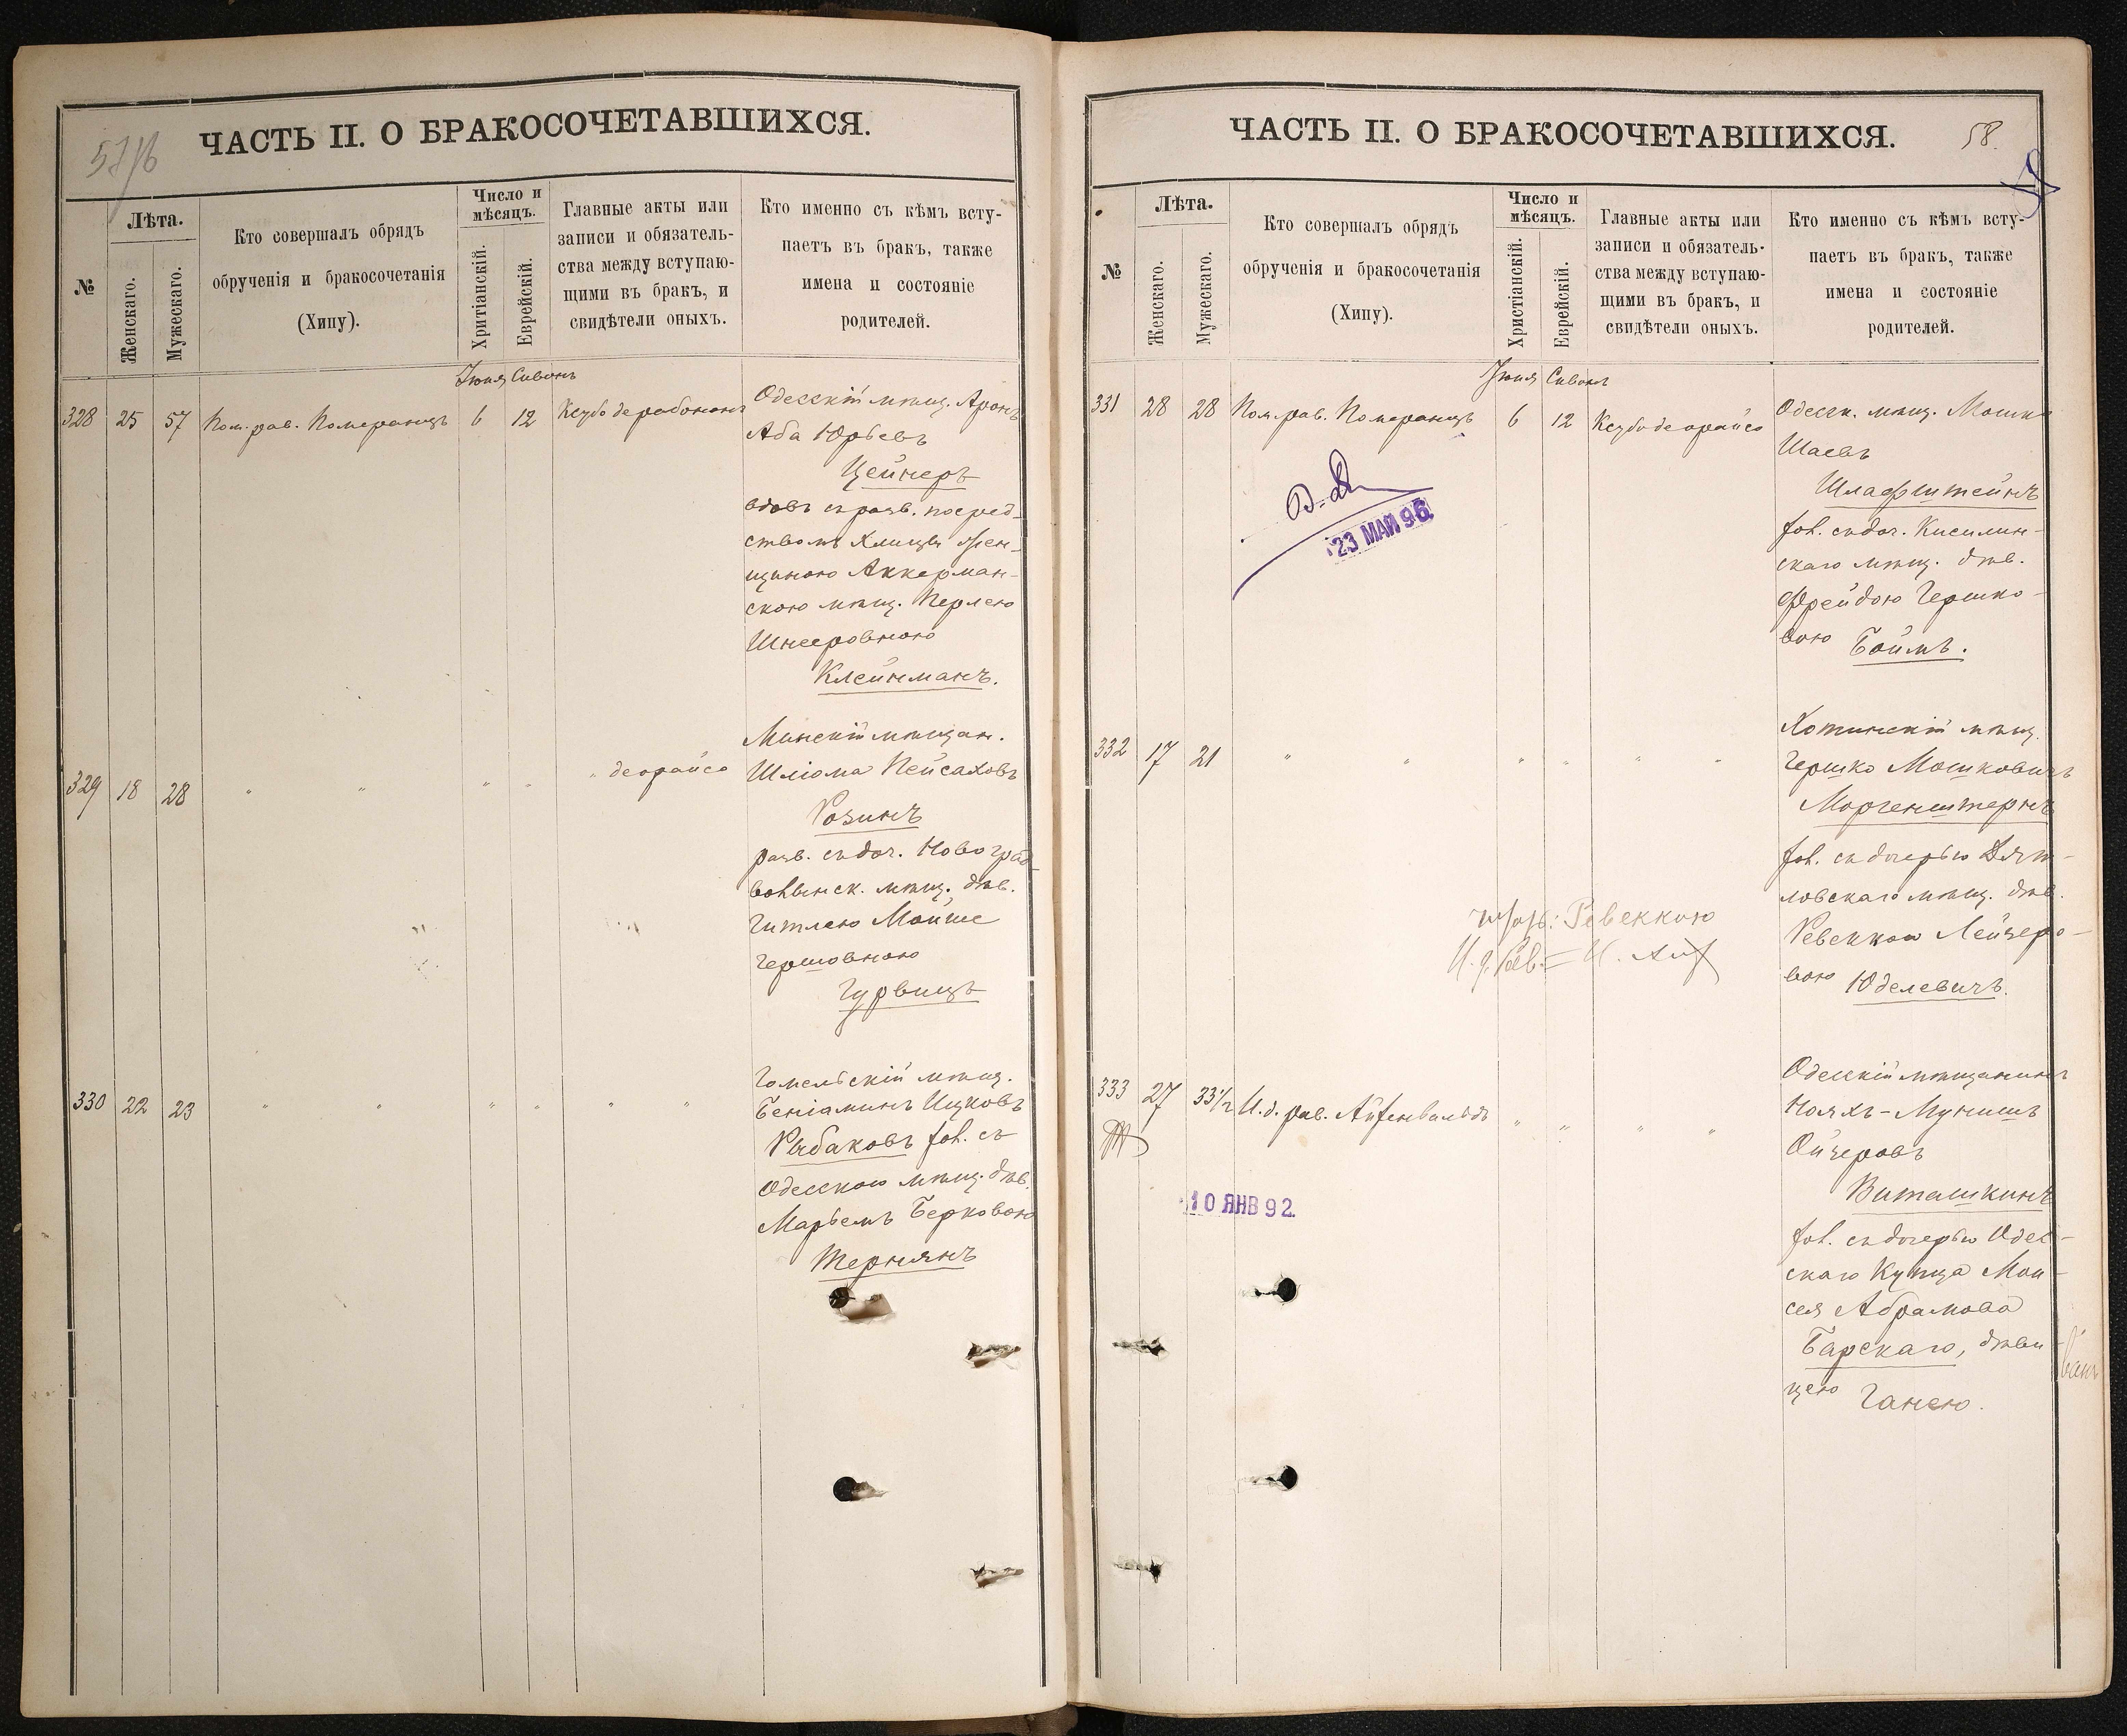 57/б
ЧАСТЬ II. О БРАКОСОЧЕТАВШИХСЯ.
№
Лѣта.
Женскаго.
Мужескаго.
Кто совершалъ обрядъ
обрученія и бракосочетанія
(Хипу).
Число и
мѣсяцъ.
Хритіанскій.
Еврейскій.
Главные акты или
записи и обязатель-
ства между вступаю-
щими въ бракъ, и
свидѣтели оныхъ.
Кто именно съ кѣмъ всту-
паетъ въ бракъ, также
имена и состояніе
родителей.
Іюня Сивонъ
328 25 57 Пом. рав. Померанцъ 6 12 Ксубо дерабонанъ
Одесскій мѣщ. Аронъ
Аба Юрьевъ
Цейнеръ
вдовъ съ разв. посред-
ствомъ Хлицы жен-
щиною Аккерман-
скою мѣщ. Перлею
Шнееровною
Клейнманъ.
329 18 28 " " " " " деорайсо
Минскій мѣщан.
Шліома Пейсаховъ
Розинъ
разв. съ доч. Новоград
волынск. мѣщ. дѣв.
Гитлею Мойше
Гершовною
Гурвицъ
330 22 23 " " " " " "
Гомельскій мѣщ.
Беніаминъ Ицковъ
Рыбаковъ хол. съ
Одесскою мѣщ. дѣв.
Марьемъ Берковою
Тернянъ
ЧАСТЬ II. О БРАКОСОЧЕТАВШИХСЯ.
58.
№
Лѣта.
Женскаго.
Мужескаго.
Кто совершалъ обрядъ
обрученія и бракосочетанія
(Хипу).
Число и
мѣсяцъ.
Христіанскій.
Еврейскій.
Главные акты или
записи и обязатель-
ства между вступаю-
щими въ бракъ, и
свидѣтели оныхъ.
Кто именно съ кѣмъ всту-
паетъ въ бракъ, также
имена и состояніе
родителей.
Іюня Сивонъ
331 28 28 Пом. рав. Померанцъ 6 12 Ксубо деорайсо
Одесск. мѣщ. Мошко
Шаевъ
Шлафштейнъ
хол. съ доч. Кисилин-
скаго мѣщ. дѣв.
Фрейдою Гершко-
вою Боймъ.
23 МАЙ 96.
332 17 21 " " " " " "
Хотинскій мѣщ.
Гершко Мошковичъ
Моргенштернъ
хол. съ дочерью Дят-
ловскаго мѣщ. дѣв.
Ревеккою Лейзеро-
вою Юделевичъ.
Ревеккою
И. д. Рав.
333 27 33½ И. д. рав. Айзенвальдъ " " " "
Одесскій мѣщанинъ
Ноахъ-Мунишъ
Ойзеровъ
Виташкинъ
хол. съ дочерью Одес-
скаго Купца Мои-
сея Абрамова
Барскаго, дѣви-
цею Ганею.
10 ЯНВ 92.